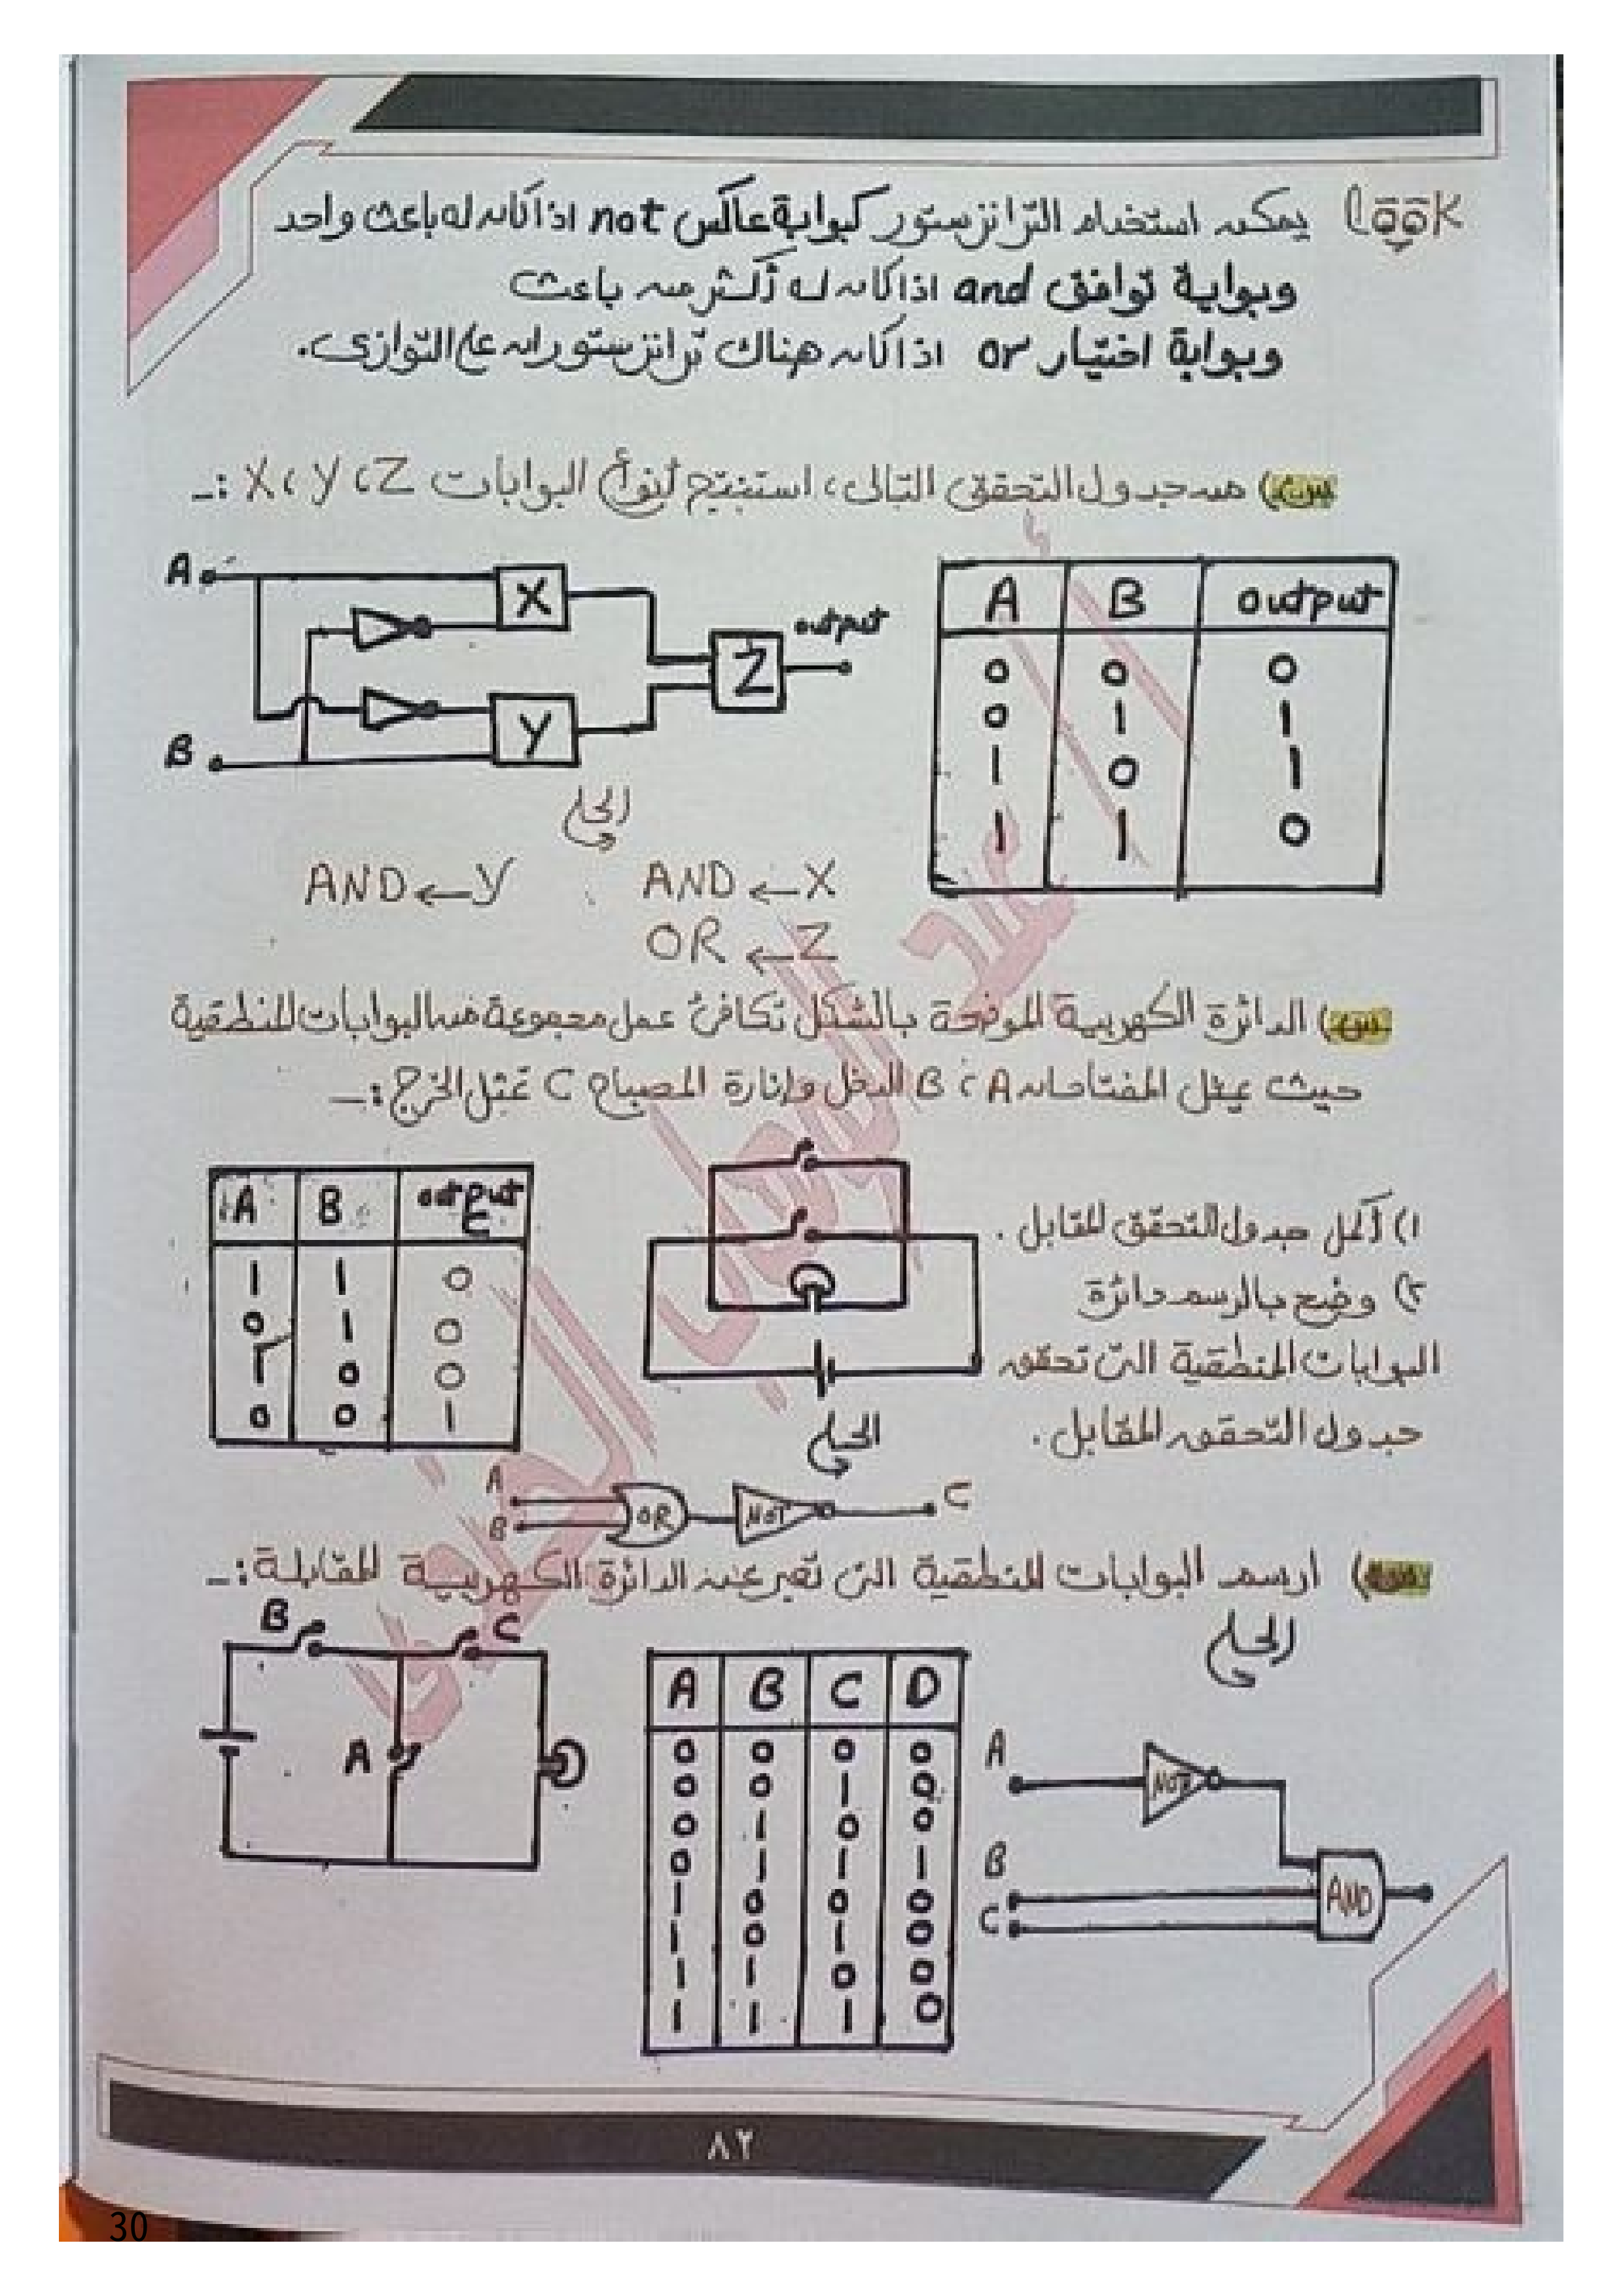 look يمكن استخدام الترانزستور كبوابة عاكس not اذا كان له باعث واحد
وبوابة توافق and اذا كان له أكثر من باعث
وبوابة اختيار or اذا كان هناك ترانزستوران على التوازى.
س) من جدول التحقق التالى، استنتج نوع البوابات X، Y، Z :-
A
X
Z
output
Y
B
A B output
0 0 0
0 1 1
1 0 1
1 1 0
الحل
AND ← X
AND ← Y
OR ← Z
س) الدائرة الكهربية الموضحة بالشكل تكافئ عمل مجموعة من البوابات المنطقية
حيث يمثل المفتاحان A، B الدخل وإنارة المصباح C تمثل الخرج :-
١) أكمل جدول التحقق المقابل .
٢) وضح بالرسم دائرة
البوابات المنطقية التى تحقق
جدول التحقق المقابل .
A B output C
1 1 0
0 1 0
1 0 0
0 0 1
الحل
A
B
OR
NOT
C
س) ارسم البوابات المنطقية التى تعبر عن الدائرة الكهربية المقابلة :-
الحل
B
C
A
A B C D
0 0 0 0
0 0 1 0
0 1 0 0
0 1 1 1
1 0 0 0
1 0 1 0
1 1 0 0
1 1 1 0
A
NOT
B
C
AND
٨٢
30